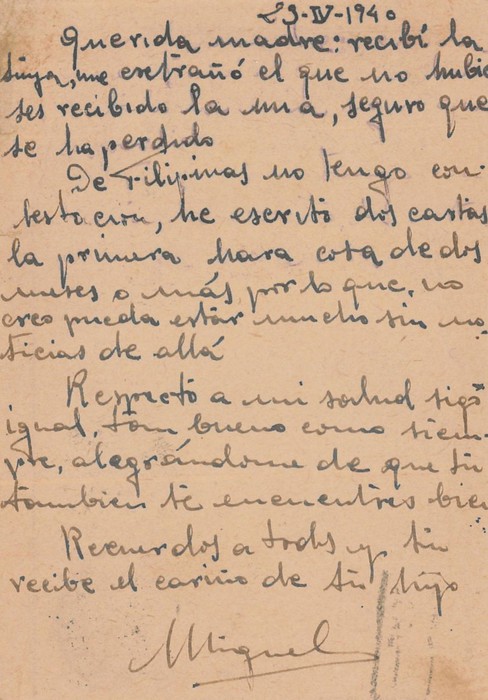 23-IV-1940
Querida madre: recibí la
tuya, me extrañó el que no hubie
ses recibido la mia, seguro que
se ha perdido
De Filipinas no tengo con-
testacion, he escrito dos cartas
la primera hara cosa de dos
meses o más por lo que, no
creo pueda estar mucho sin no-
ticias de allá
Respecto a mi salud sigo
igual, tam bueno como siem-
pre, alegrándome de que tu
tambien te encuentres bien
Recuerdos a todos y tu
recibe el cariño de tu hijo
Miguel